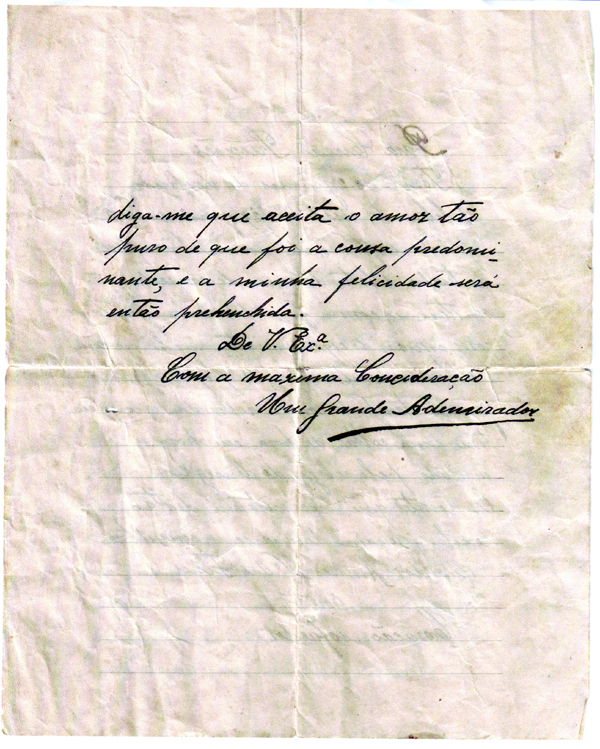 diga-me que aceita o amor tão
puro de que foi a causa predomi-
nante, e a minha felicidade será
então prehenchida.
De V. Ex.ª
Com a maxima Concideração
Um grande Ademirador